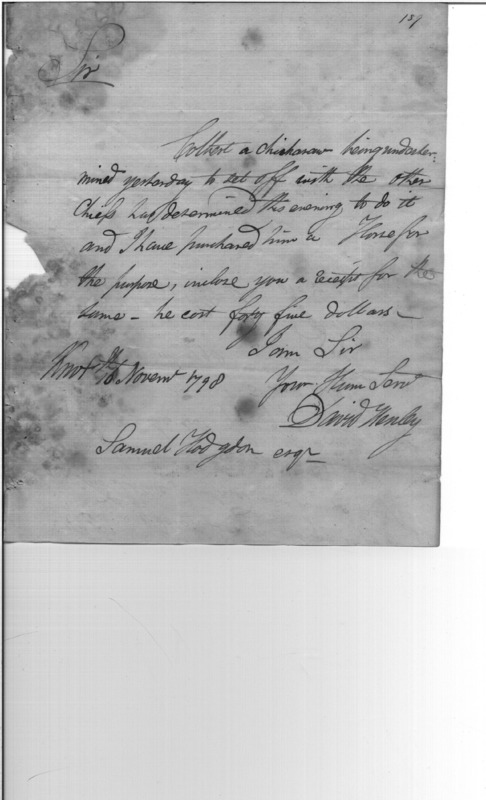 189
Sir
Colbert a Chickasaw being undeter-
mined yesterday to set off with the other
Chiefs has determined this evening to do it
and I have purchased him a Horse for
the purpose, inclose you a receipt for the
same - he cost forty five dollars -
I am Sir
Knox Novemr 1798 Your Hum Servt
David Henley
Samuel Hodgdon esqr